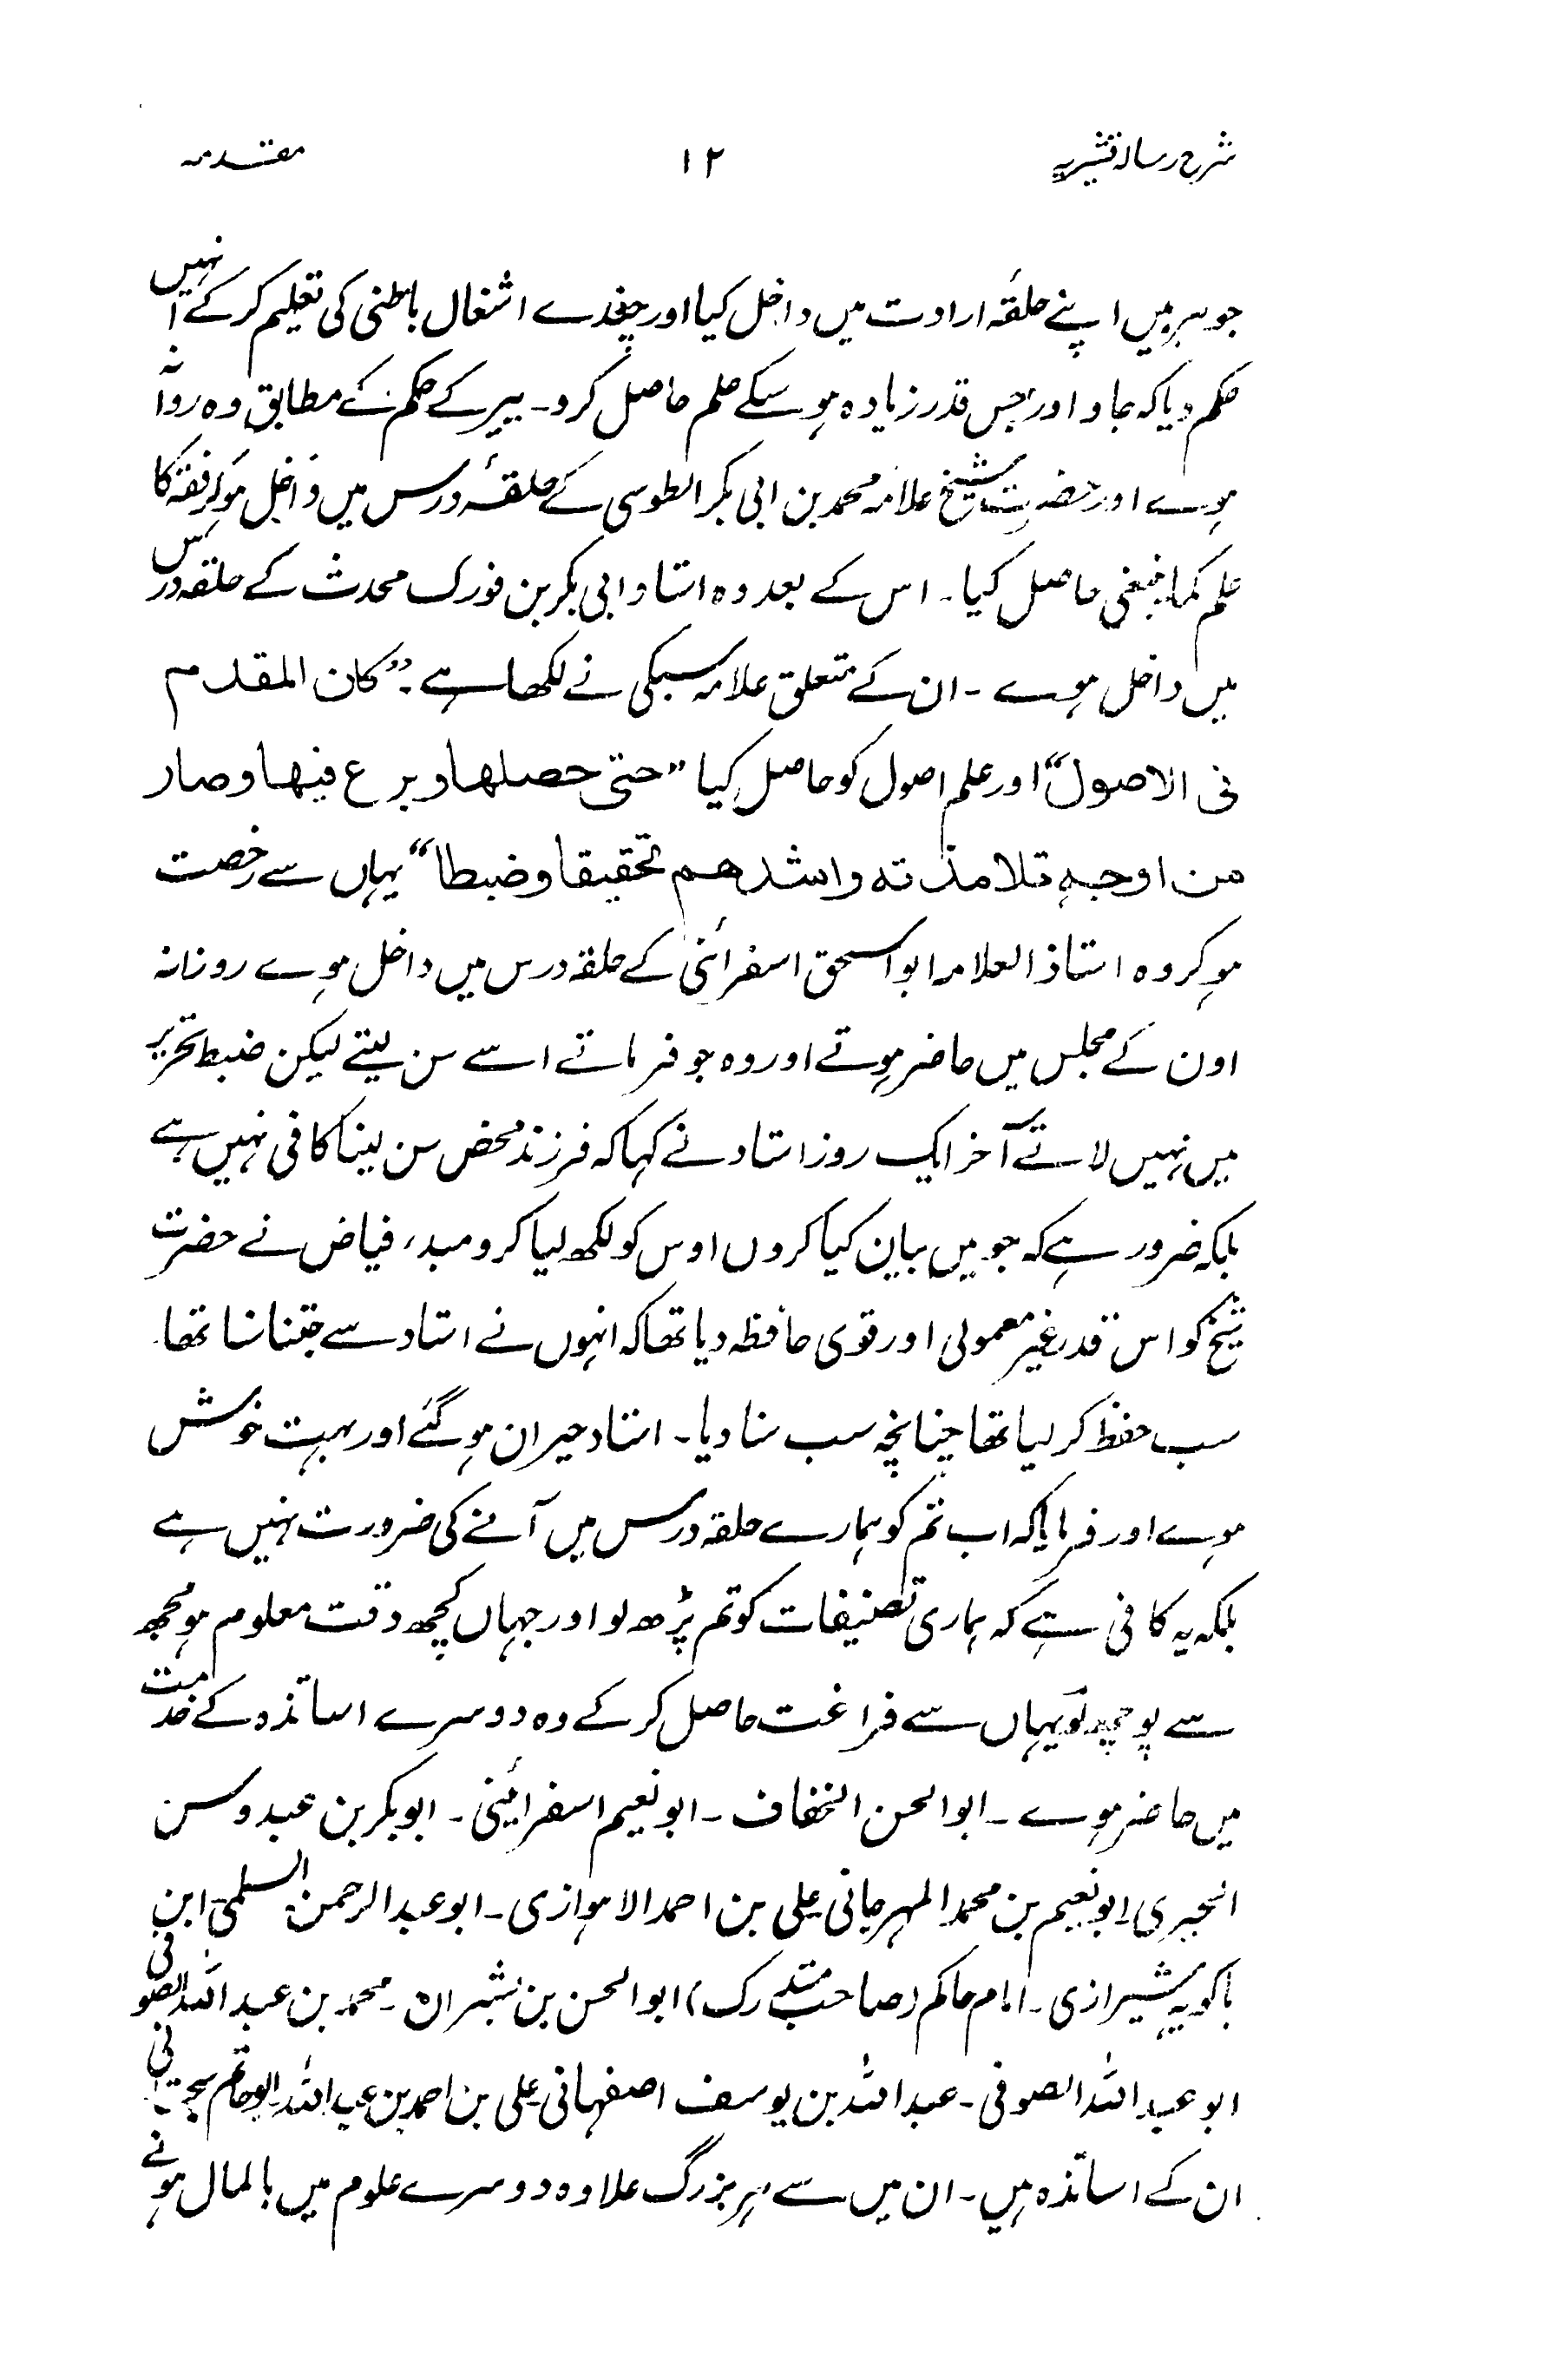 شرح رسالہ قشیریہ ۱۲ مقدمہ
جوہر ہیں اپنے حلقۂ ارادت میں داخل کیا اور چندے اشغال باطنی کی تعلیم کر کے انہیں
حکم دیا کہ جاو اور جس قدر زیادہ ہو سکے علم حاصل کرو۔ پیر کے حکم کے مطابق وہ روانہ
ہوے اور حضرت شیخ علامہ محمد بن ابی بکر الطوسی کے حلقۂ درس میں داخل ہوکر فقہ کا
علم کما ینبغی حاصل کیا۔ اس کے بعد وہ استاد ابی بکر بن فورک محدث کے حلقہ درس
میں داخل ہوے ۔ ان کے متعلق علامہ سبکی نے لکھا ہے ۔ ”کان المقدم
فی الاصول“ اور علم اصول کو حاصل کیا ”حتی حصلھا وبرع فیھا وصار
من اوجہ تلامذتہ واشدھم تحقیقا وضبطا“ یہاں سے رخصت
ہو کر وہ استاذ العلامہ ابو اسحق اسفرائنی کے حلقہ درس میں داخل ہوے روزانہ
اون کے مجلس میں حاضر ہوتے اور وہ جو فرماتے اسے سن لیتے لیکن ضبط تحریر
میں نہیں لاتے آخر ایک روز استاد نے کہا کہ فرزند محض سن لینا کافی نہیں ہے
بلکہ ضرور ہے کہ جو میں بیان کیا کروں اوس کو لکھ لیا کرو مبدء فیاض نے حضرت
شیخ کو اس قدر غیر معمولی اور قوی حافظہ دیا تھا کہ انہوں نے استاد سے جتنا سنا تھا
سب حفظ کر لیا تھا چنانچہ سب سنا دیا۔ استاد حیران ہو گئے اور بہت خوش
ہوے اور فرمایا کہ اب تم کو ہمارے حلقہ درس میں آنے کی ضرورت نہیں ہے
بلکہ یہ کافی ہے کہ ہماری تصنیفات کو تم پڑھ لو اور جہاں کچھ دقت معلوم ہو مجھ
سے پوچھ لو یہاں سے فراغت حاصل کر کے وہ دوسرے اساتذہ کے خدمت
میں حاضر ہوے ۔ ابو الحسن الخفاف ۔ ابو نعیم اسفرائینی ۔ ابو بکر بن عبدوسن
الحیری۔ ابو نعیم بن محمد المہرجانی علی بن احمد الاہوازی۔ ابو عبد الرحمن السلمی۔ ابن
باکویہ شیرازی۔ امام حاکم (صاحب مستدرک) ابو الحسن بن بشران۔ محمد بن عبد اللہ الصوفی
ابو عبد اللہ الصوفی۔ عبد اللہ بن یوسف اصفہانی علی بن احمد بن عبد اللہ۔ ابو حاتم سجستانی
ان کے اساتذہ ہیں۔ ان میں سے ہر بزرگ علاوہ دوسرے علوم میں باکمال ہونے